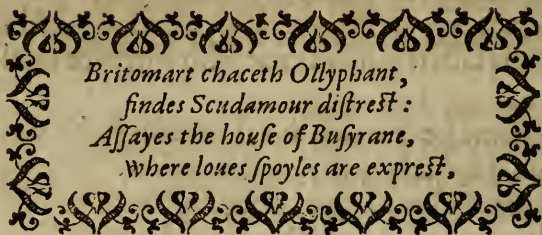 Britomart chaceth Ollyphant,
findes Scudamour diſtreſt:
Aſſayes the houſe of Buſyrane,
where loues ſpoyles are expreſt,